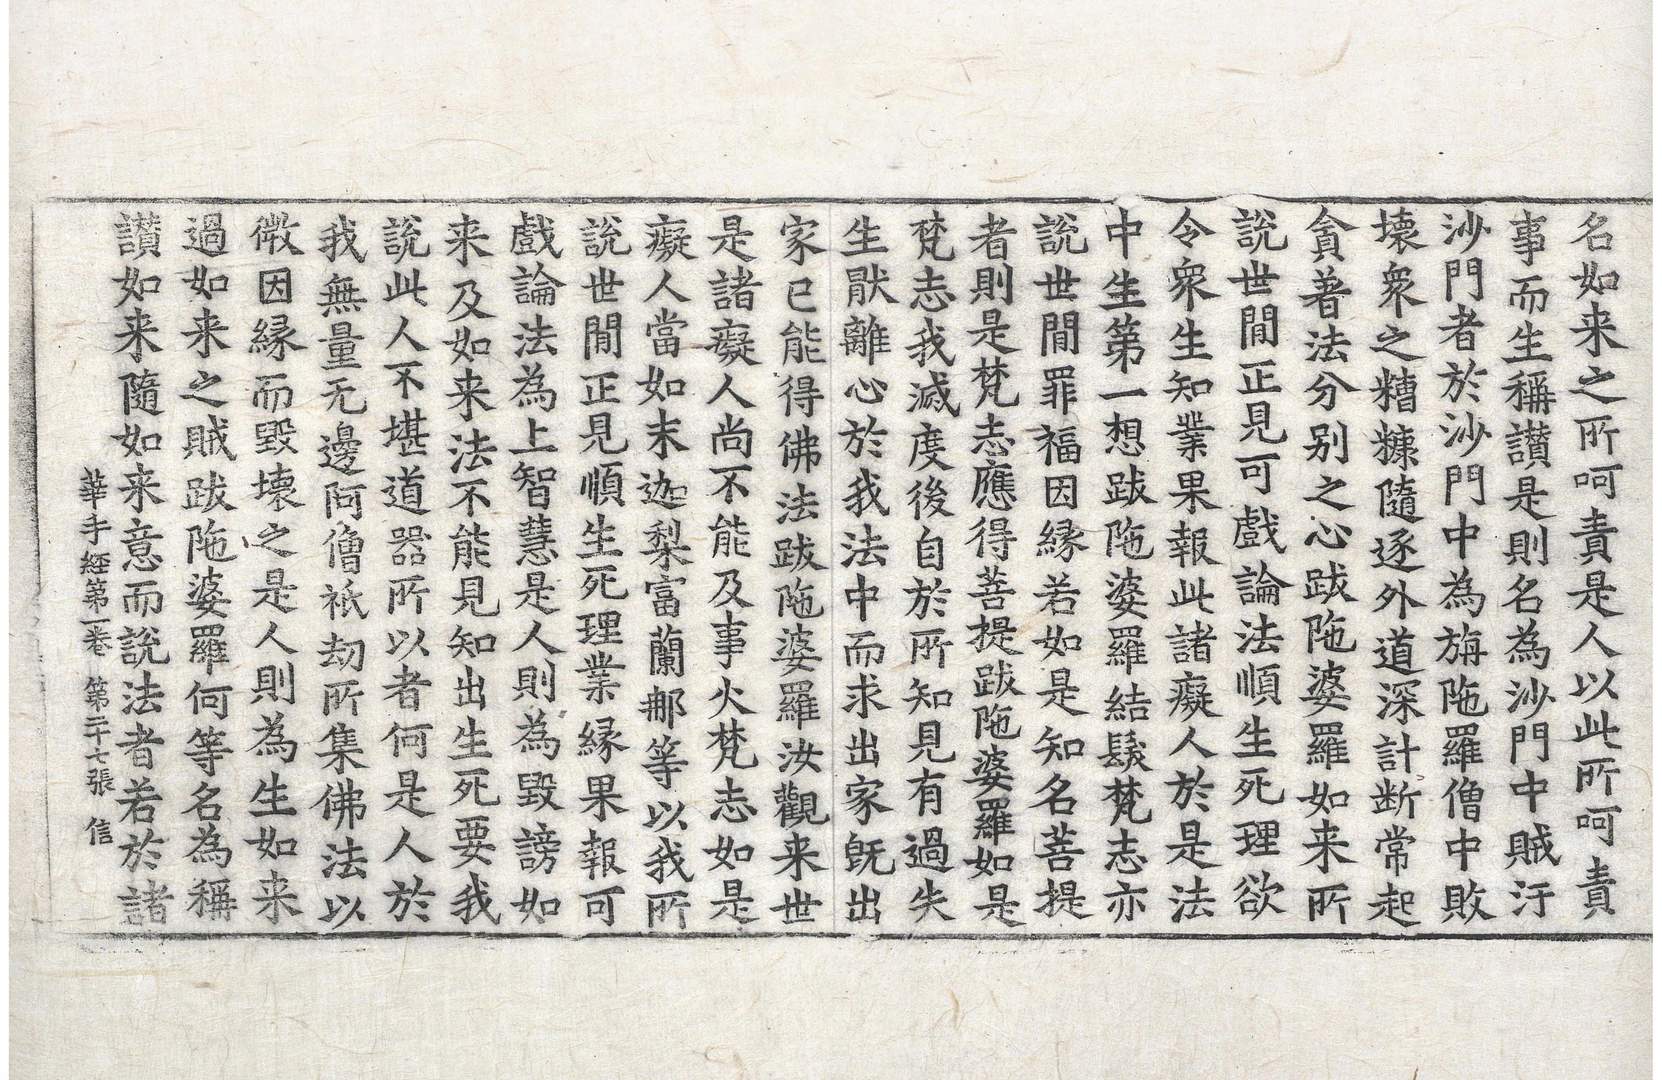 名如来之所呵責是人以此所呵責
事而生稱讃是則名為沙門中賊汙
沙門者於沙門中為旃陁羅僧中敗
壞衆之糟糠隨逐外道深計断常起
貪著法分别之心跋陁婆羅如来所
說世間正見可戲論法順生死理欲
令衆生知業果報此諸癡人於是法
中生第一想跋陁婆羅結鬚梵志亦
說世間罪福因縁若如是知名菩提
者則是梵志應得菩提跋陁婆羅如是
梵志我滅度後自於所知見有過失
生猒離心於我法中而求出家旣出
家已能得佛法跋陁婆羅汝觀来世
是諸癡人尚不能及事火梵志如是
癡人當如末迦梨富蘭那等以我所
說世間正見順生死理業縁果報可
戲論法為上智慧是人則為毀謗如
来及如来法不能見知出生死要我
說此人不堪道器所以者何是人於
我無量无邊阿僧祇劫所集佛法以
微因縁而毀壞之是人則為生如来
過如来之賊跋陁婆羅何等名為稱
讃如来隨如来意而說法者若於諸
華手經第一卷　第二十七張　信